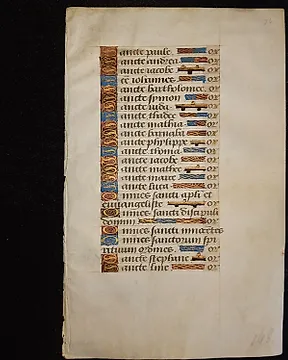 Sancte paule. or
Sancte andrea or
Sancte iacobe or
Sancte iohannes. or
Sancte bartholomee. or
Sancte symon or
Sancte iuda or
Sancte thadee or
Sancte mathia or
Sancte barnaba or
Sancte phylippe or
Sancte thoma or
Sancte iacobe or
Sancte mathee or
Sancte marce or
Sancte luca or
Omnes sancti apli et
euuangeliste or
Omnes sancti discipuli
domini or
Omnes sancti innocetes
Omnes sanctorum spi
rituum ordines. or
Sancte stephane or
Sancte line or